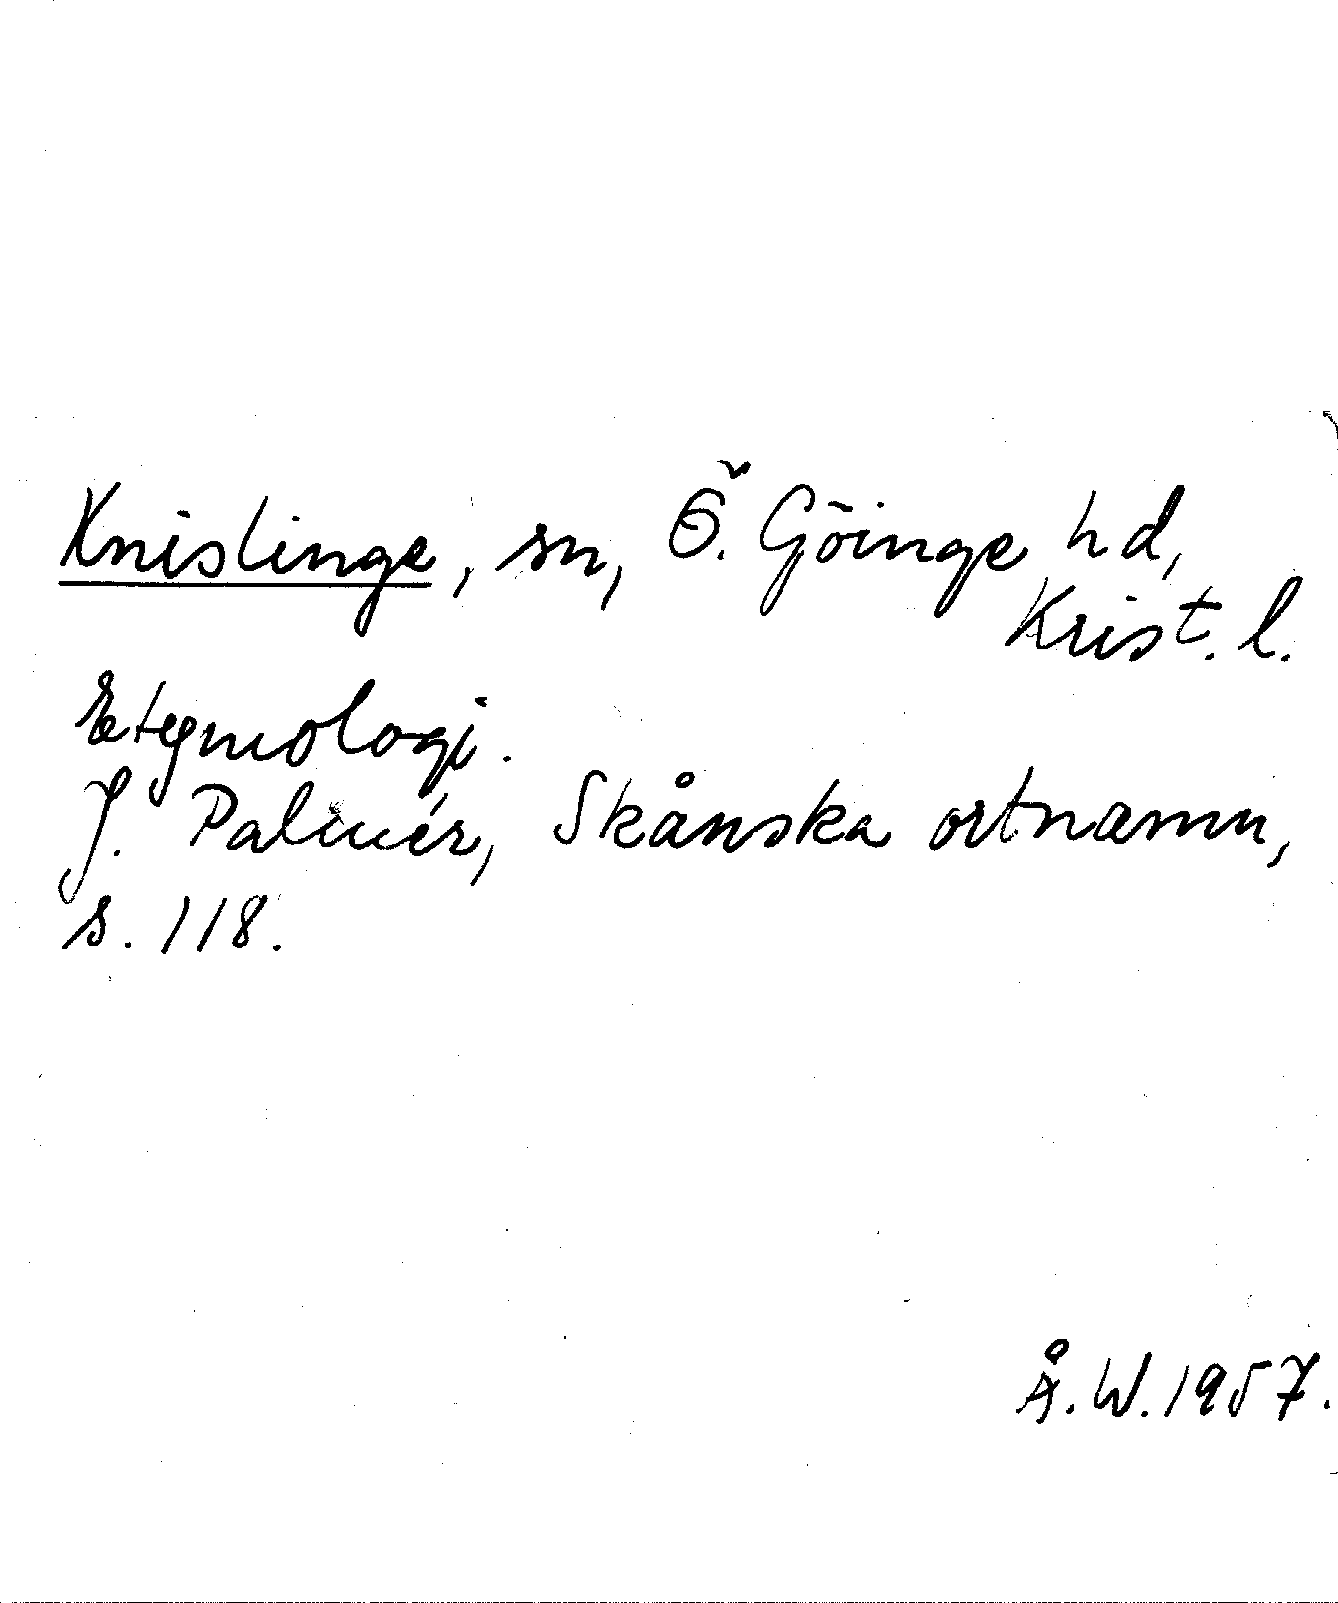 Knislinge, sn, Ö. Göinge hd,
Krist. l.
Etymologi.
J. Palmér, Skånska ortnamn,
s. 118.
Å. W. 1957.